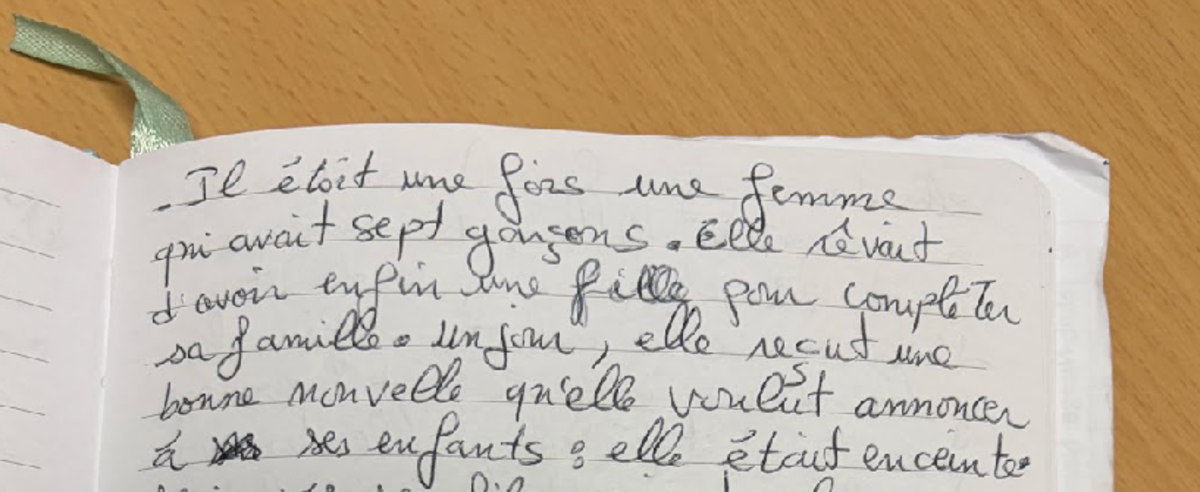 Il était une fois une femme
qui avait sept garçons. Elle rêvait
d'avoir enfin une fille pour compléter
sa famille. un jour, elle recut une
bonne nouvelle qu'elle voulut annoncer
à ses enfants : elle était enceinte.